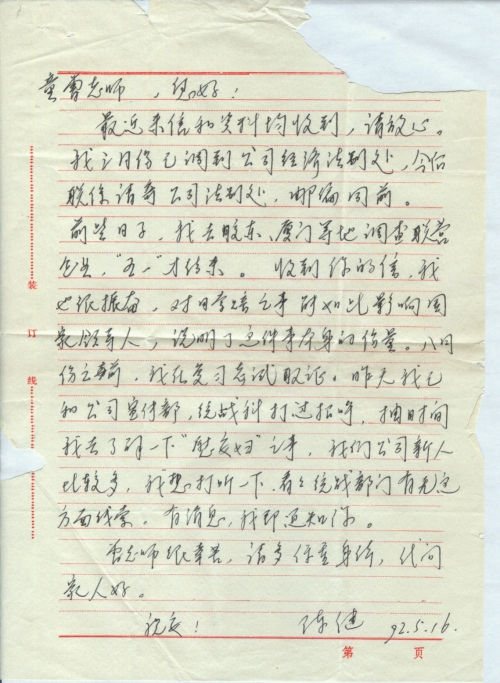 童曹老师，您好！
最近来信和资料均收到，请放心。
我三月份已调到公司经济法制处，今后
联系请寄公司法制处，邮编同前。
前些日子，我去胶东、厦门等地调查联营
企业，"五一"才归来。收到你的信，我
也很振奋，对日索赔之事能如此影响国
家领导人，说明了这件事本身的份量。八月
份之前，我在复习考试取证。昨天我已
和公司宣传部，统战科打过招呼，抽时间
我去了解一下"慰安妇"之事，我们公司新人
比较多，我想打听一下，看看统战部门有无这
方面线索。有消息，我即通知你。
曹老师很辛苦，请多保重身体，代问
家人好。
祝安！
陈健 92.5.16.
装
订
线
第 页